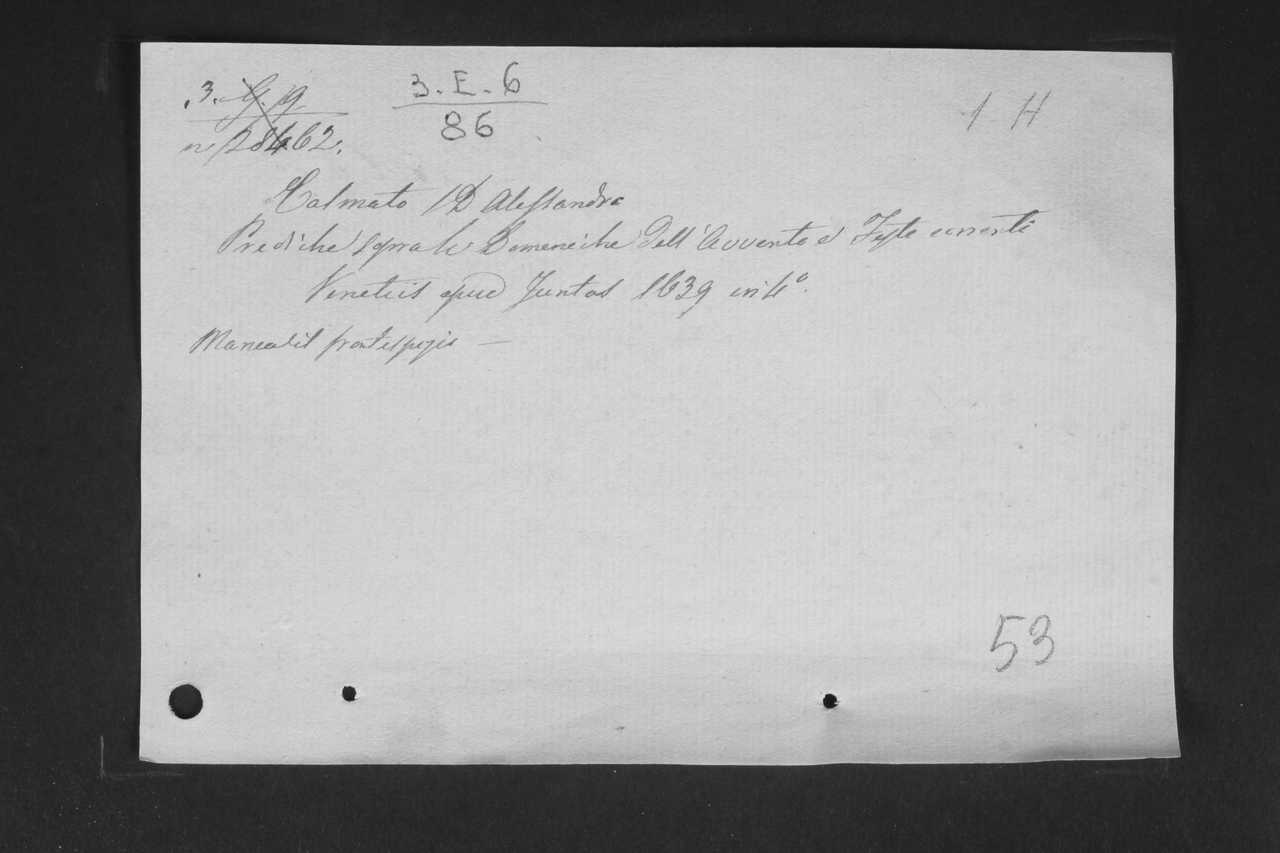 3. G. 9
n 28462.
3. E. 6
86
1 H
Calmato / D Alessandro
Prediche sopra le Domeniche dell'Avvento e Feste correnti
Venetiis apud Juntas 1639 in 4°.
Manca il frontespizio —
53